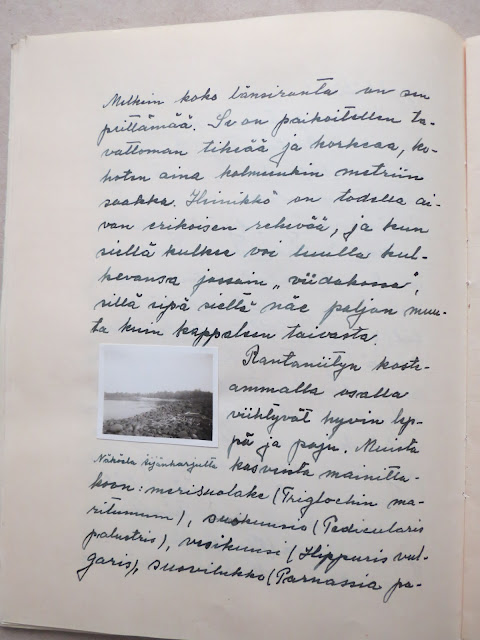 Melkein koko länsiranta on sen
peittämää. Se on paikoitellen ta-
vattoman tiheää ja korkeaa, ko-
hoten aina kolmeenkin metriin
saakka. Heinikkö on todella ai-
van erikoisen rehevää, ja kun
siellä kulkee voi luulla kul-
kevansa jossain „viidakossa",
sillä eipä sieltä näe paljon muu-
ta kuin kappaleen taivasta.
Rantaniityn koste-
ammalla osalla
viihtyvät hyvin lep-
pä ja paju. Muista
Näköala Äijänharjulta
kasveista mainitta-
koon: merisuolake (Triglochin ma-
ritumum), suokuusio (Pedicularis
palustris), vesikuusi (Hippuris vul-
garis), suovilukko (Parnassia pa-